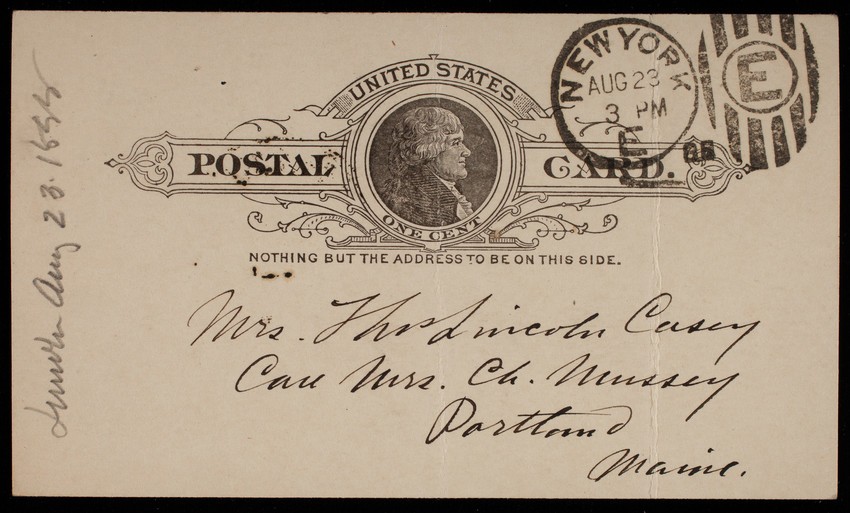 UNITED STATES
POSTAL CARD.
ONE CENT
NOTHING BUT THE ADDRESS TO BE ON THIS SIDE.
NEW YORK
AUG 23
3 PM
E
86
E
Mrs. Thos Lincoln Casey
Care Mrs. Ch. Mussey
Portland
Maine.
Lincoln Aug 23. 1886